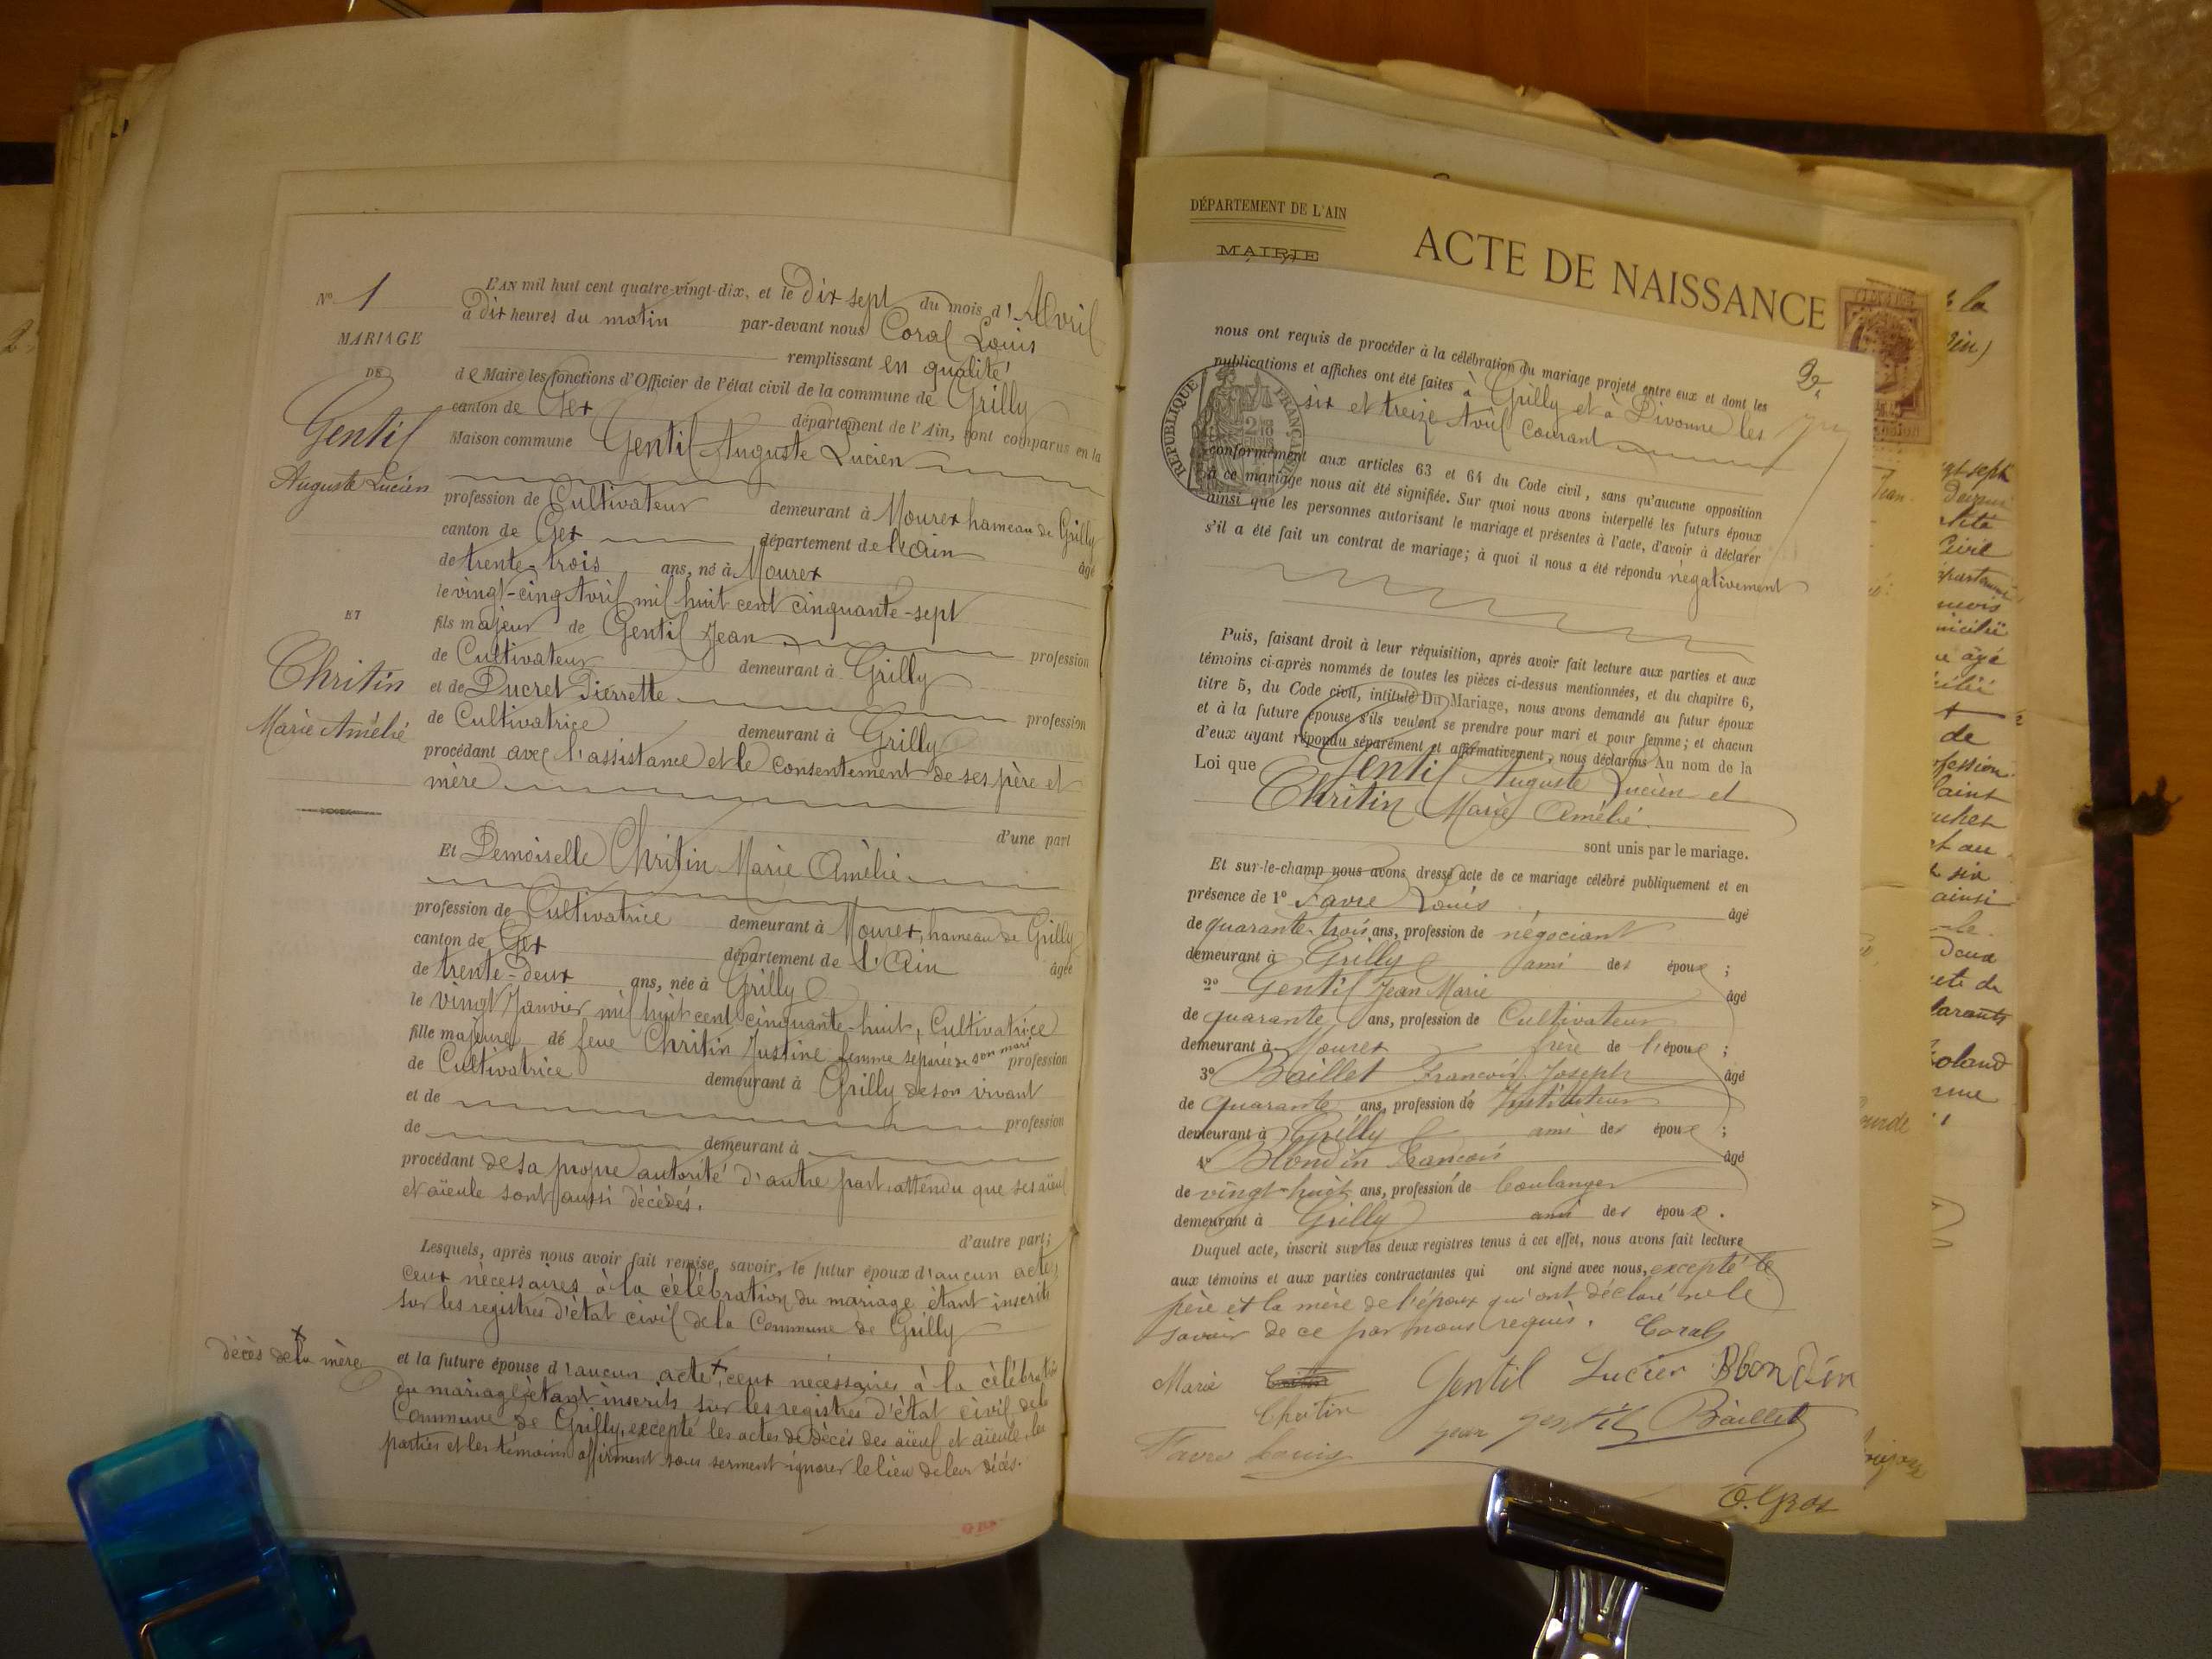 N° 1
MARIAGE
DE
Gentil
Auguste Lucien
ET
Christin
Marie Amélie
L'AN mil huit cent quatre-vingt-dix, et le Dix sept du mois d'Avril
à Dix heures du matin par-devant nous Coral Louis
remplissant en qualité
de Maire les fonctions d'Officier de l'état civil de la commune de Grilly
canton de Gex département de l'Ain, sont comparus en la
Maison commune Gentil Auguste Lucien
profession de Cultivateur demeurant à Mourex hameau de Grilly
canton de Gex département de l'Ain âgé
de trente-trois ans, né à Mourex
le vingt-cinq Avril mil huit cent cinquante-sept
fils majeur de Gentil Jean profession
de Cultivateur demeurant à Grilly
et de Ducret Pierrette profession
de Cultivatrice demeurant à Grilly
procédant avec l'assistance et le consentement de ses père et
mère
d'une part
Et Demoiselle Chritin Marie Amélie
profession de Cultivatrice demeurant à Mourex, hameau de Grilly
canton de Gex département de l'Ain âgée
de trente-deux ans, née à Grilly
le vingt Janvier mil huit cent cinquante-huit, Cultivatrice
fille majeure de feue Chritin Justine femme séparée de son mari profession
de Cultivatrice demeurant à Grilly de son vivant
et de profession
de demeurant à
procédant de sa propre autorité d'autre part, attendu que ses aïeul
et aïeule sont aussi décédés.
d'autre part;
Lesquels, après nous avoir fait remise, savoir, le futur époux d'aucun acte,
ceux nécessaires à la célébration du mariage étant inscrits
sur les registres d'état civil de la Commune de Grilly
décès de la mère
et la future épouse d'aucun acte, ceux nécessaires à la célébration
du mariage étant inscrits sur les registres d'état civil de la
Commune de Grilly, excepté les actes de décès des aïeul et aïeule, les
parties et les témoins affirment sous serment ignorer le lieu de leur décès.
DÉPARTEMENT DE L'AIN
MAIRIE
ACTE DE NAISSANCE
2
RÉPUBLIQUE FRANÇAISE
nous ont requis de procéder à la célébration du mariage projeté entre eux et dont les
publications et affiches ont été faites à Grilly et à Divonne les
six et treize Avril courant
conformément aux articles 63 et 64 du Code civil, sans qu'aucune opposition
à ce mariage nous ait été signifiée. Sur quoi nous avons interpellé les futurs époux
ainsi que les personnes autorisant le mariage et présentes à l'acte, d'avoir à déclarer
s'il a été fait un contrat de mariage; à quoi il nous a été répondu négativement
Puis, faisant droit à leur réquisition, après avoir fait lecture aux parties et aux
témoins ci-après nommés de toutes les pièces ci-dessus mentionnées, et du chapitre 6,
titre 5, du Code civil, intitulé Du Mariage, nous avons demandé au futur époux
et à la future épouse s'ils veulent se prendre pour mari et pour femme; et chacun
d'eux ayant répondu séparément et affirmativement, nous déclarons Au nom de la
Loi que Gentil Auguste Lucien et
Chritin Marie Amélie
sont unis par le mariage.
Et sur-le-champ nous avons dressé acte de ce mariage célébré publiquement et en
présence de 1° Favre Louis âgé
de quarante-trois ans, profession de négociant
demeurant à Grilly ami des époux ;
2° Gentil Jean Marie âgé
de quarante ans, profession de Cultivateur
demeurant à Mourex frère de l'époux ;
3° Baillet François Joseph âgé
de quarante ans, profession de Instituteur
demeurant à Grilly ami des époux ;
4° Blondin François âgé
de vingt-huit ans, profession de boulanger
demeurant à Grilly ami des époux.
Duquel acte, inscrit sur les deux registres tenus à cet effet, nous avons fait lecture
aux témoins et aux parties contractantes qui ont signé avec nous, excepté le
père et la mère de l'époux qui ont déclaré ne le
savoir de ce par nous requis. Coral
Marie Gentil Lucien Blondin
Chritin
jean gentil Baillet
Favre Louis